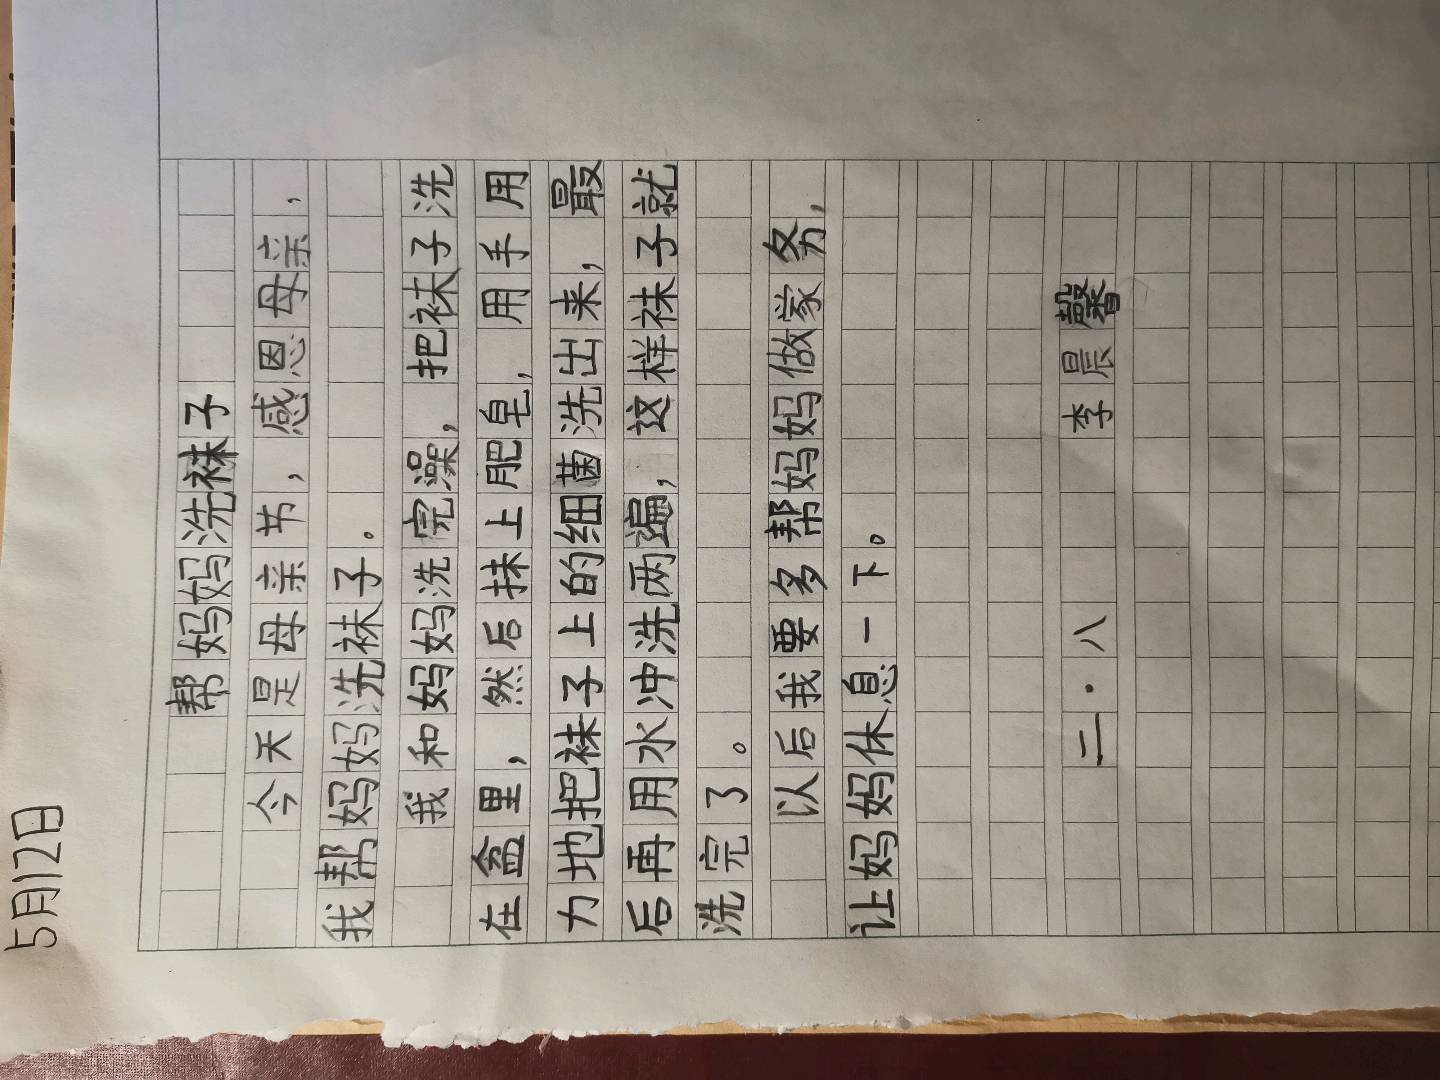 5月12日
帮妈妈洗袜子
今天是母亲节，感恩母亲，
我帮妈妈洗袜子。
我和妈妈洗完澡，把袜子洗
在盆里，然后抹上肥皂，用手用
力地把袜子上的细菌洗出来，最
后再用水冲洗两遍，这样袜子就
洗完了。
以后我要多帮妈妈做家务，
让妈妈休息一下。
二·八 李晨馨